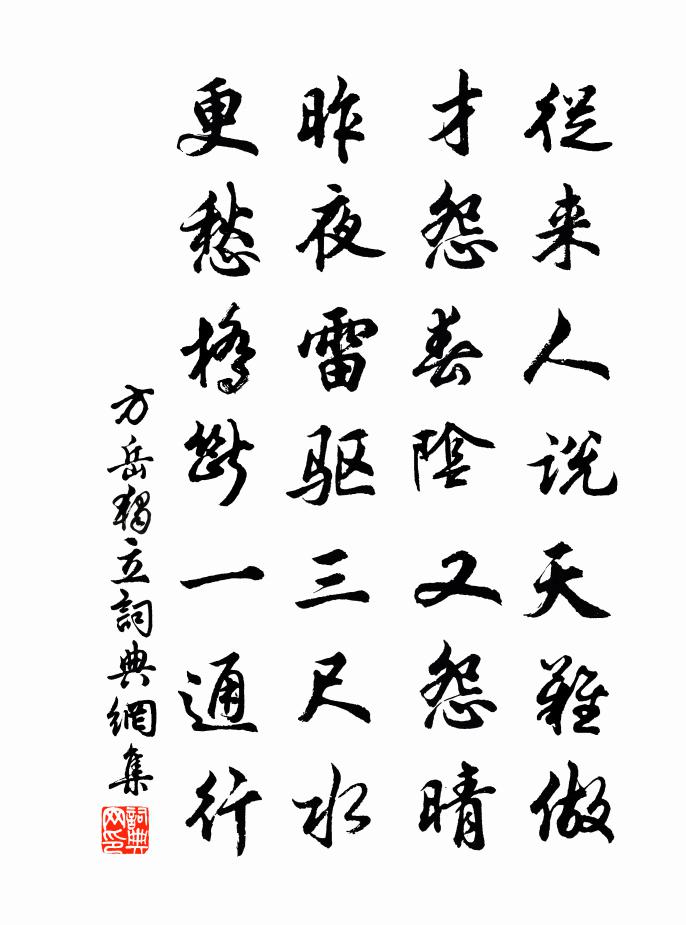 從来人说天難做
才怨春陰又怨晴
昨夜雷驱三尺水
更愁橋斷一通行
方岳獨立詞典網集
詞典网印